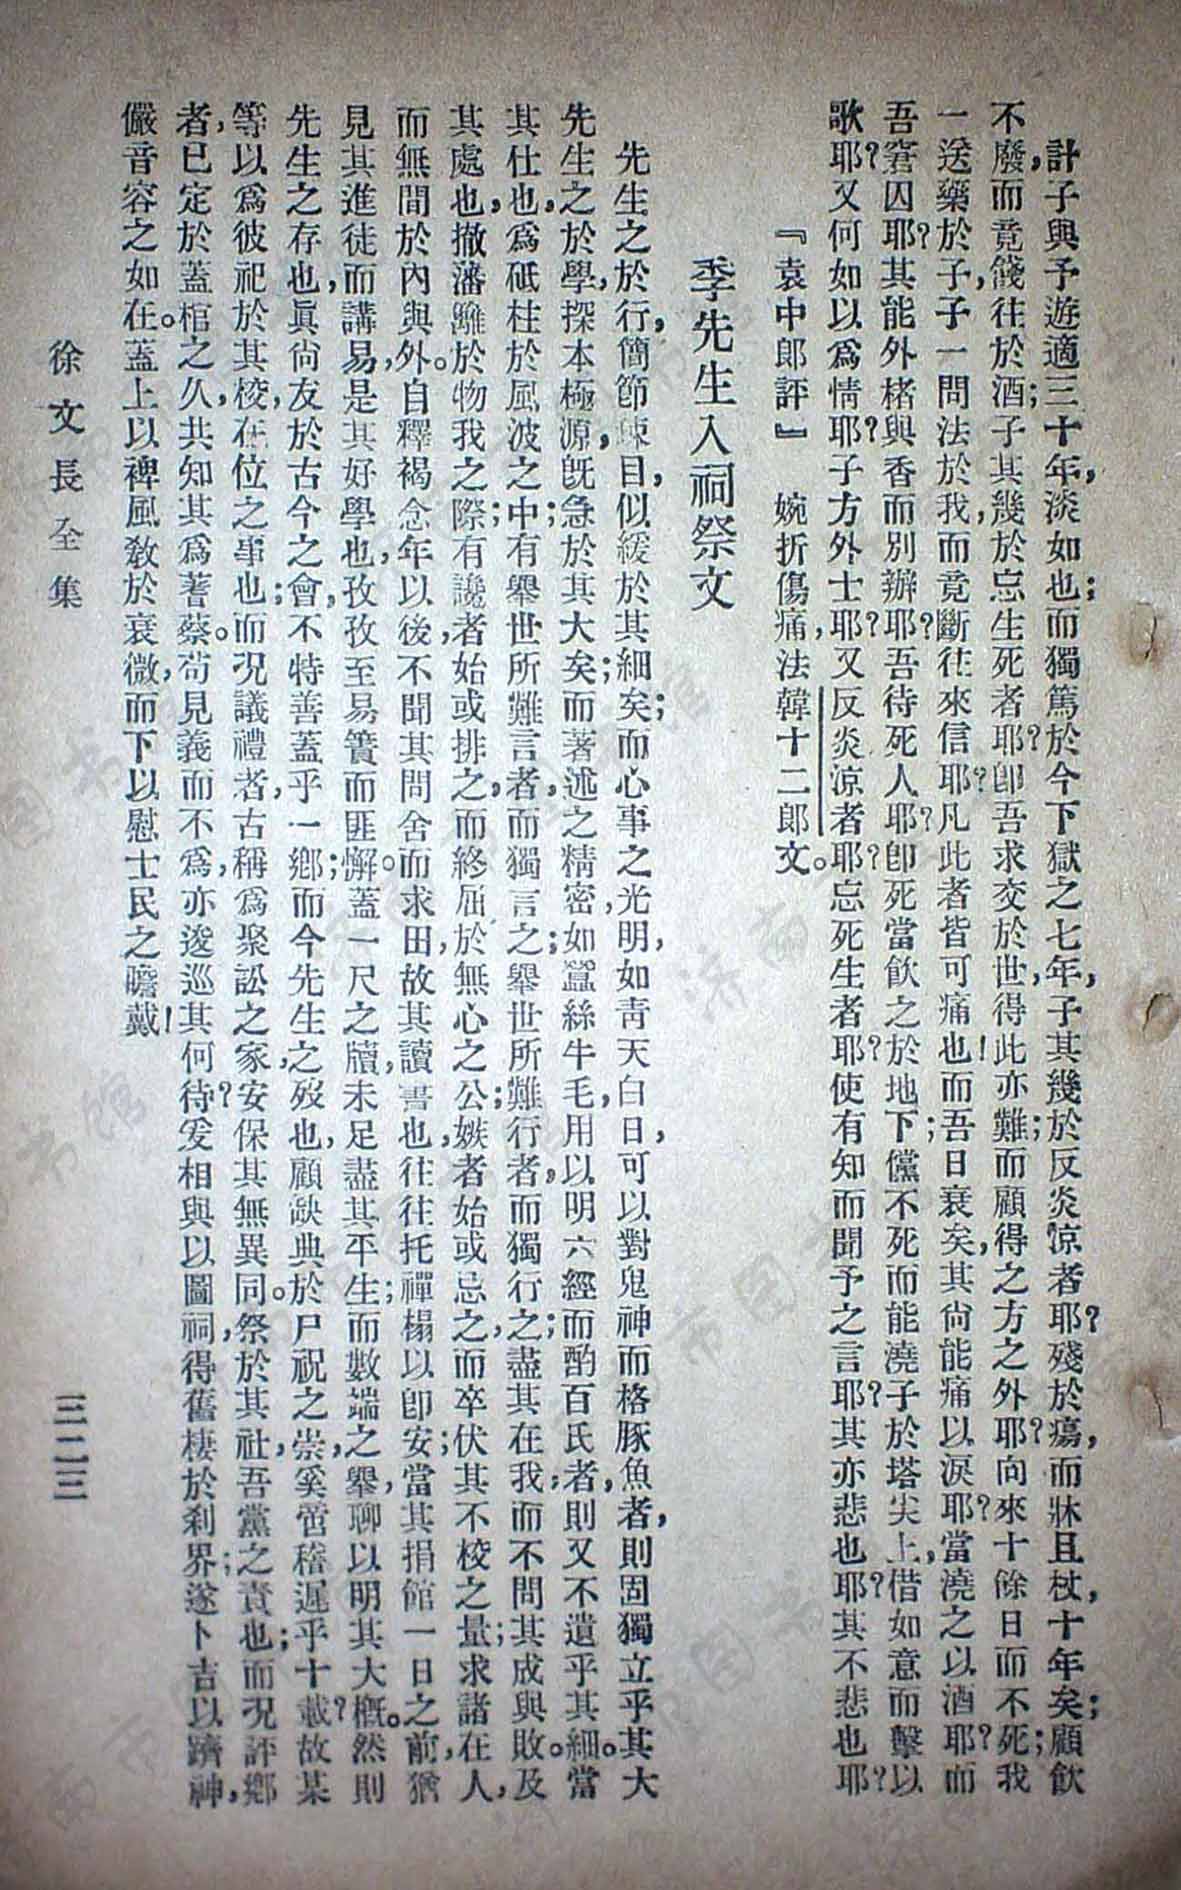 計子與予遊適三十年，淡如也；而獨篤於今下獄之七年，子其幾於反炎涼者耶？殘於瘍，而牀且杖，十年矣；顧飲
不廢，而竟餞往於酒；子其幾於忘生死者耶？卽吾求交於世，得此亦難；而顧得之方之外耶？向來十餘日而不死；我
一送藥於子，子一問法於我，而竟斷往來信耶？凡此者皆可痛也！而吾日衰矣，其尙能痛以淚耶？當澆之以酒耶？而
吾窘囚耶？其能外楮與香而別辦耶？吾待死人耶？卽死當飮之於地下；儻不死而能澆子於塔尖上，借如意而擊以
歌耶？又何如以爲情耶？子方外士耶？又反炎凉者耶？忘死生者耶？使有知而聞予之言耶？其亦悲也耶？其不悲也耶？
『袁中郞評』　婉折傷痛，法韓十二郞文。
季先生入祠祭文
先生之於行，簡節疎目，似緩於其細矣；而心事之光明，如靑天白日，可以對鬼神而格豚魚者，則固獨立乎其大
先生之於學，探本極源，旣急於其大矣；而著述之精密，如蠶絲牛毛，用以明六經；而酌百氏者，則又不遺乎其細。當
其仕也，爲砥柱於風波之中；有舉世所難言者，而獨言之；舉世所難行者，而獨行之；盡其在我，而不問其成與敗。及
其處也，撤藩籬於物我之際；有讒者始或排之，而終屈於無心之公；嫉者始或忌之，而卒伏其不校之量；求諸在人，
而無間於內與外。自釋褐念年以後，不聞其問舍而求田，故其讀書也，往往托禪榻以卽安；當其捐館一日之前，猶
見其進徒而講易，是其好學也，孜孜至易簀而匪懈。蓋一尺之牘，未足盡其平生；而數端之舉，聊以明其大槪。然則
先生之存也，眞尙友於古今之會，不特善蓋乎一鄕；而今先生之歿也，顧缺典於尸祝之崇，奚啻稽遲乎十載？故某
等以爲彼祀於其校，在位之事也；而況議禮者，古稱爲聚訟之家，安保其無異同。祭於其社，吾黨之責也；而況評鄕
者，已定於蓋棺之久，共知其爲蓍蔡。苟見義而不爲，亦逡巡其何待？爰相與以圖祠，得舊棲於刹界；遂卜吉以躋神，
儼音容之如在。蓋上以裨風敎於衰微，而下以慰士民之瞻戴！
徐文長全集
三二三